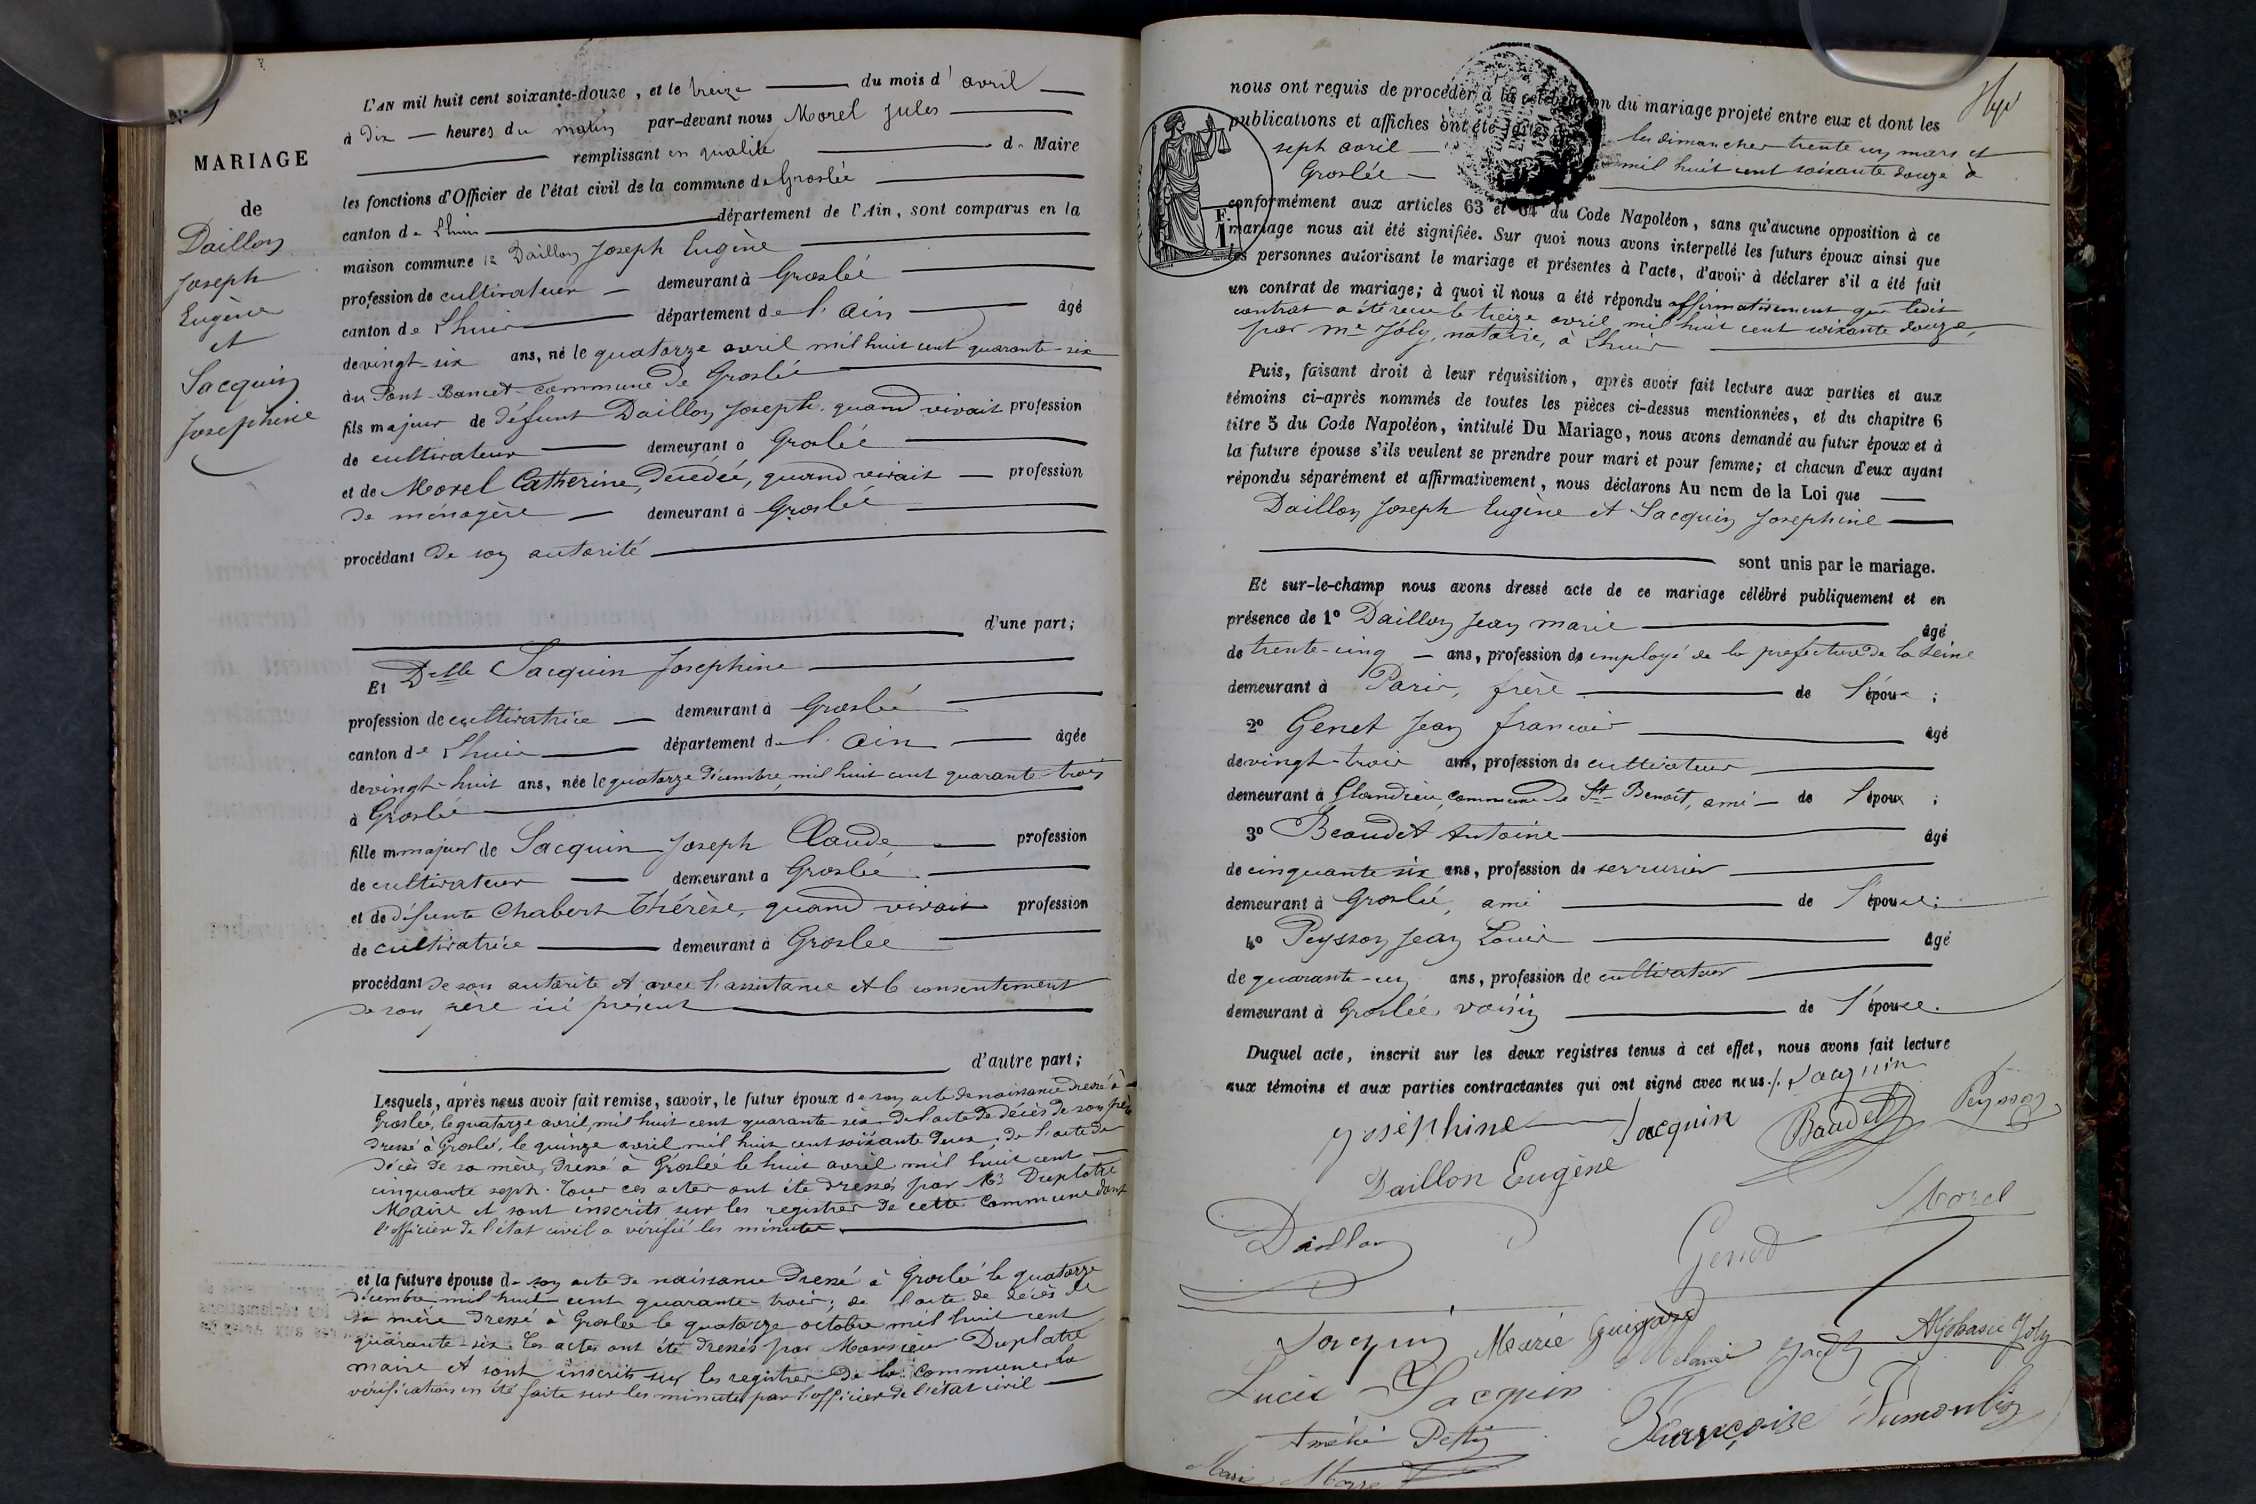 N°
MARIAGE
de
Daillon
Joseph
Eugène
et
Sacquin
Joséphine
L'AN mil huit cent soixante-douze, et le treize du mois d'avril
à dix heures du matin par-devant nous Morel Jules
remplissant en qualité de Maire
les fonctions d'Officier de l'état civil de la commune de Groslée
canton de Lhuis département de l'Ain, sont comparus en la
maison commune le Daillon Joseph Eugène
profession de cultivateur demeurant à Groslée
canton de Lhuis département de l'Ain âgé
de vingt-six ans, né le quatorze avril mil huit cent quarante-six
au Port-Bancet commune de Groslée
fils majeur de défunt Daillon Joseph, quand vivait profession
de cultivateur demeurant à Groslée
et de Morel Catherine, décédée, quand vivait profession
de ménagère demeurant à Groslée
procédant de son autorité
d'une part;
Et Delle Sacquin Joséphine
profession de cultivatrice demeurant à Groslée
canton de Lhuis département de l'Ain âgée
de vingt-huit ans, née le quatorze décembre mil huit cent quarante-trois
à Groslée
fille majeur de Sacquin Joseph Claude profession
de cultivateur demeurant à Groslée
et de défunte Chabert Thérèse, quand vivait profession
de cultivatrice demeurant à Groslée
procédant de son autorité et avec l'assistance et le consentement
de son père ici présent
d'autre part;
Lesquels, après nous avoir fait remise, savoir, le futur époux de son acte de naissance dressé à
Groslée, le quatorze avril, mil huit cent quarante-six de l'acte de décès de son père
dressé à Groslée, le quinze avril mil huit cent soixante deux, de l'acte de
décès de sa mère, dressé à Groslée le huit avril mil huit cent
cinquante sept. Tous ces actes ont été dressés par Mr Duplatre
Maire et sont inscrits sur les registres de cette commune dont
l'officier de l'état civil a vérifié les minutes
et la future épouse de son acte de naissance dressé à Groslée le quatorze
décembre mil huit cent quarante-trois; de l'acte de décès de
sa mère dressé à Groslée le quatorze octobre mil huit cent
quarante six. Ces actes ont été dressés par Monsieur Duplatre
maire et sont inscrits sur les registres de la commune la
vérification en été faite sur les minutes par l'officier de l'état civil
nous ont requis de procéder à la célébration du mariage projeté entre eux et dont les
publications et affiches ont été faites les dimanches trente un mars et
sept avril mil huit cent soixante douze à
Groslée
conformément aux articles 63 et 64 du Code Napoléon, sans qu'aucune opposition à ce
mariage nous ait été signifiée. Sur quoi nous avons interpellé les futurs époux ainsi que
les personnes autorisant le mariage et présentes à l'acte, d'avoir à déclarer s'il a été fait
un contrat de mariage; à quoi il nous a été répondu affirmativement que ledit
contrat a été reçu le treize avril mil huit cent soixante douze,
par Me Joly, notaire, à Lhuis
Puis, faisant droit à leur réquisition, après avoir fait lecture aux parties et aux
témoins ci-après nommés de toutes les pièces ci-dessus mentionnées, et du chapitre 6
titre 5 du Code Napoléon, intitulé Du Mariage, nous avons demandé au futur époux et à
la future épouse s'ils veulent se prendre pour mari et pour femme; et chacun d'eux ayant
répondu séparément et affirmativement, nous déclarons Au nom de la Loi que
Daillon Joseph Eugène et Sacquin Joséphine
sont unis par le mariage.
Et sur-le-champ nous avons dressé acte de ce mariage célébré publiquement et en
présence de 1° Daillon Jean Marie âgé
de trente-cinq ans, profession de employé de la préfecture de la Seine
demeurant à Paris, frère de l'époux;
2° Genet Jean François âgé
de vingt-trois ans, profession de cultivateur
demeurant à Glandieu, commune de St-Benoît, ami de l'époux;
3° Beaudet Antoine âgé
de cinquante six ans, profession de serrurier
demeurant à Groslée, ami de l'épouse;
4° Peysson Jean Louis âgé
de quarante-un ans, profession de cultivateur
demeurant à Groslée, voisin de l'épouse.
Duquel acte, inscrit sur les deux registres tenus à cet effet, nous avons fait lecture
aux témoins et aux parties contractantes qui ont signé avec nous. Sacquin
Joséphine Sacquin Baudet Peysson
Daillon Eugène
Daillon Genet Morel
Sacquin Marie Guigard
Lucie Sacquin Melanie Athanasie Joly
Françoise Dumoulin
Amélie
Marie
F.
1